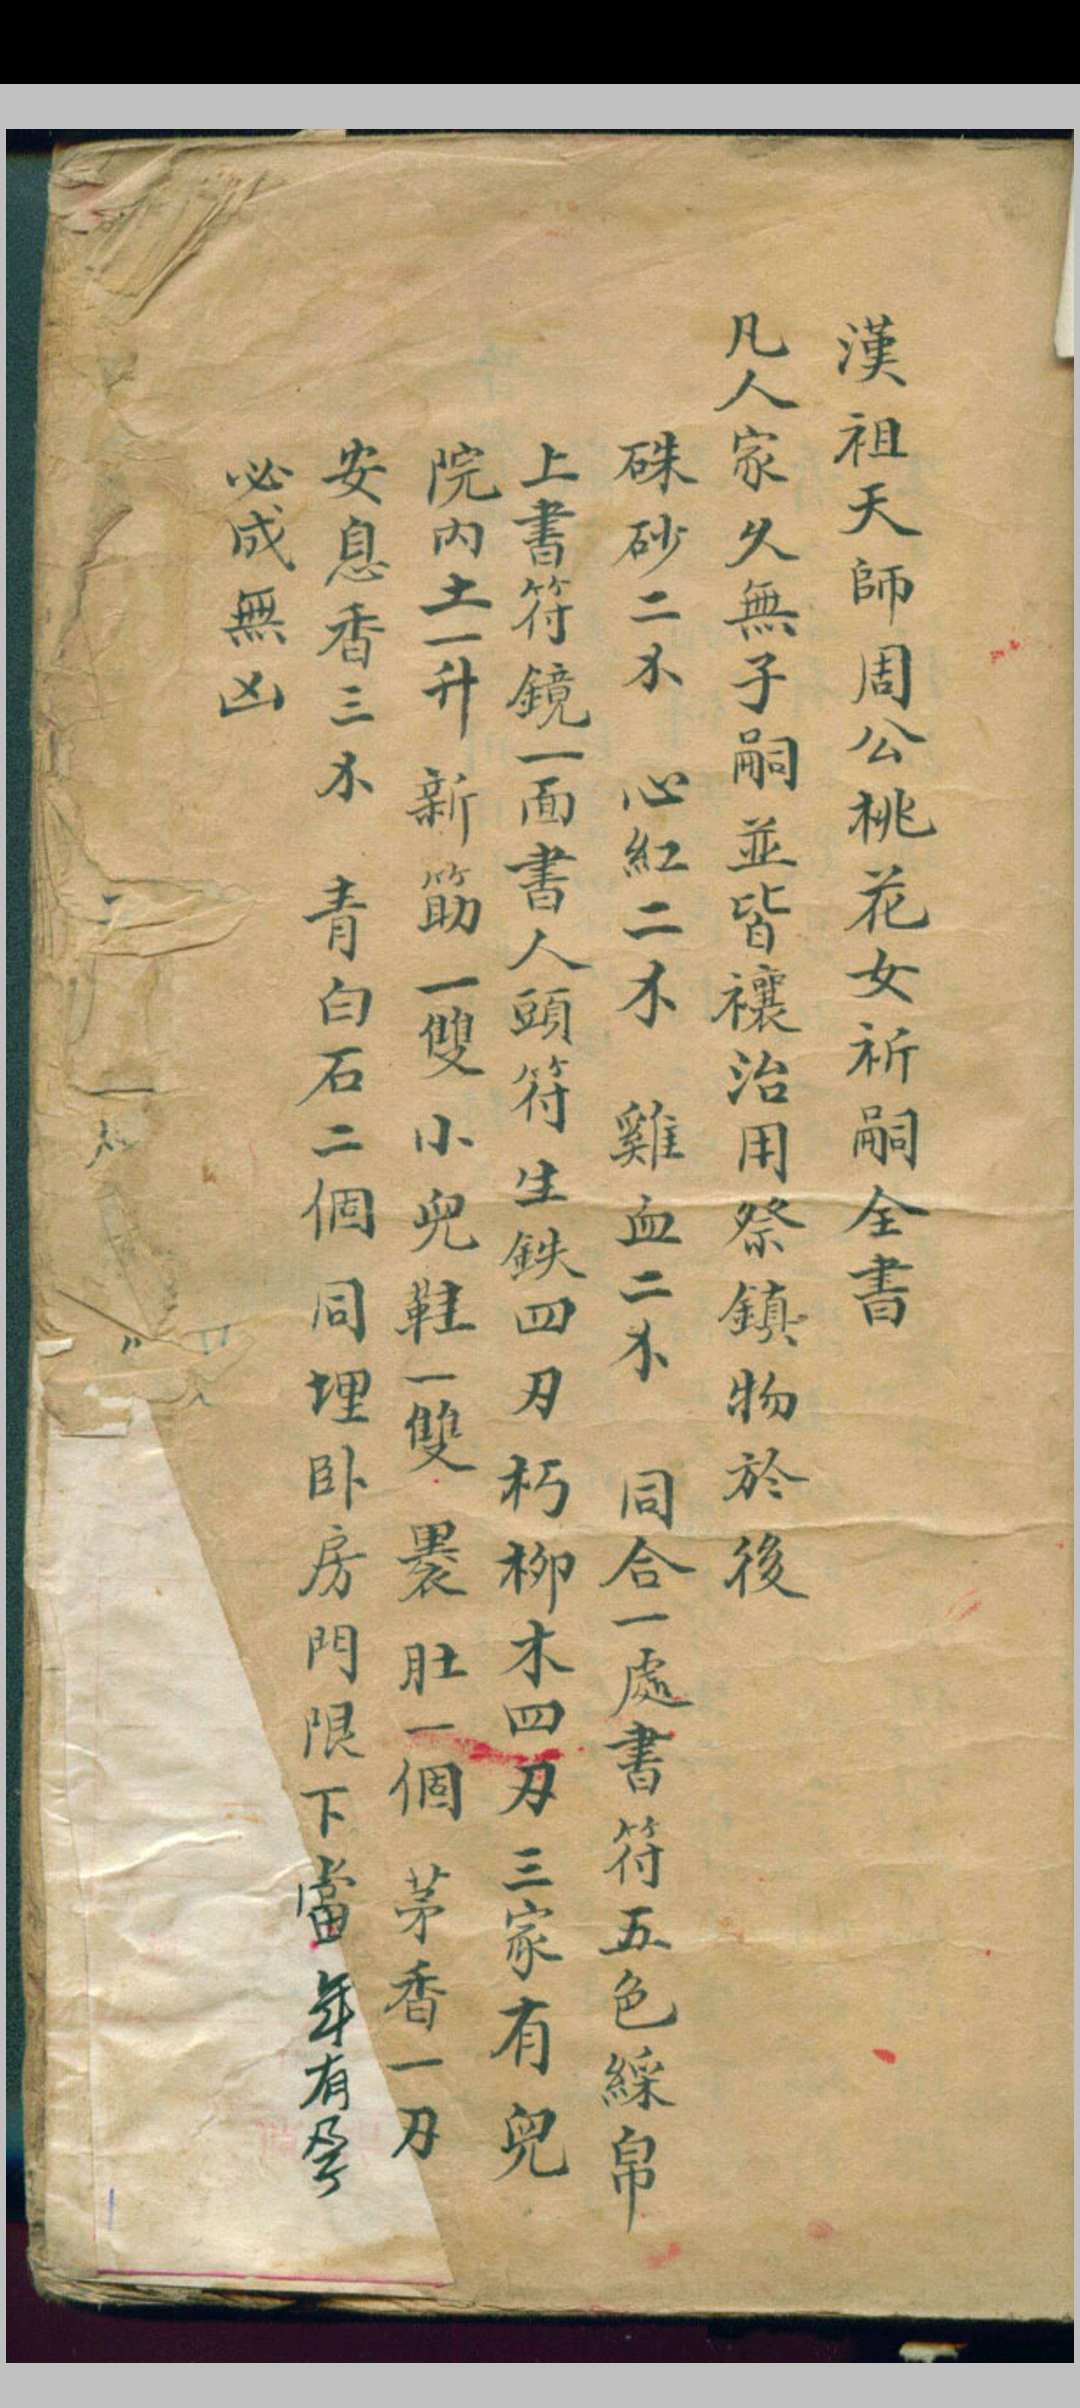 漢祖天師周公桃花女祈嗣全書
凡人家久無子嗣並皆禳治用祭鎮物於後
硃砂二不 心紅二不 雞血二不 同合一處書符五色綵帛
上書符鏡一面書人頭符生鉄四刀朽柳木四刀三家有兒
院內土一升 新筯一雙小兒鞋一雙 裹肚一個 茅香一刀
安息香三不 青白石二個 同埋卧房門限下當年有孕
必成無凶